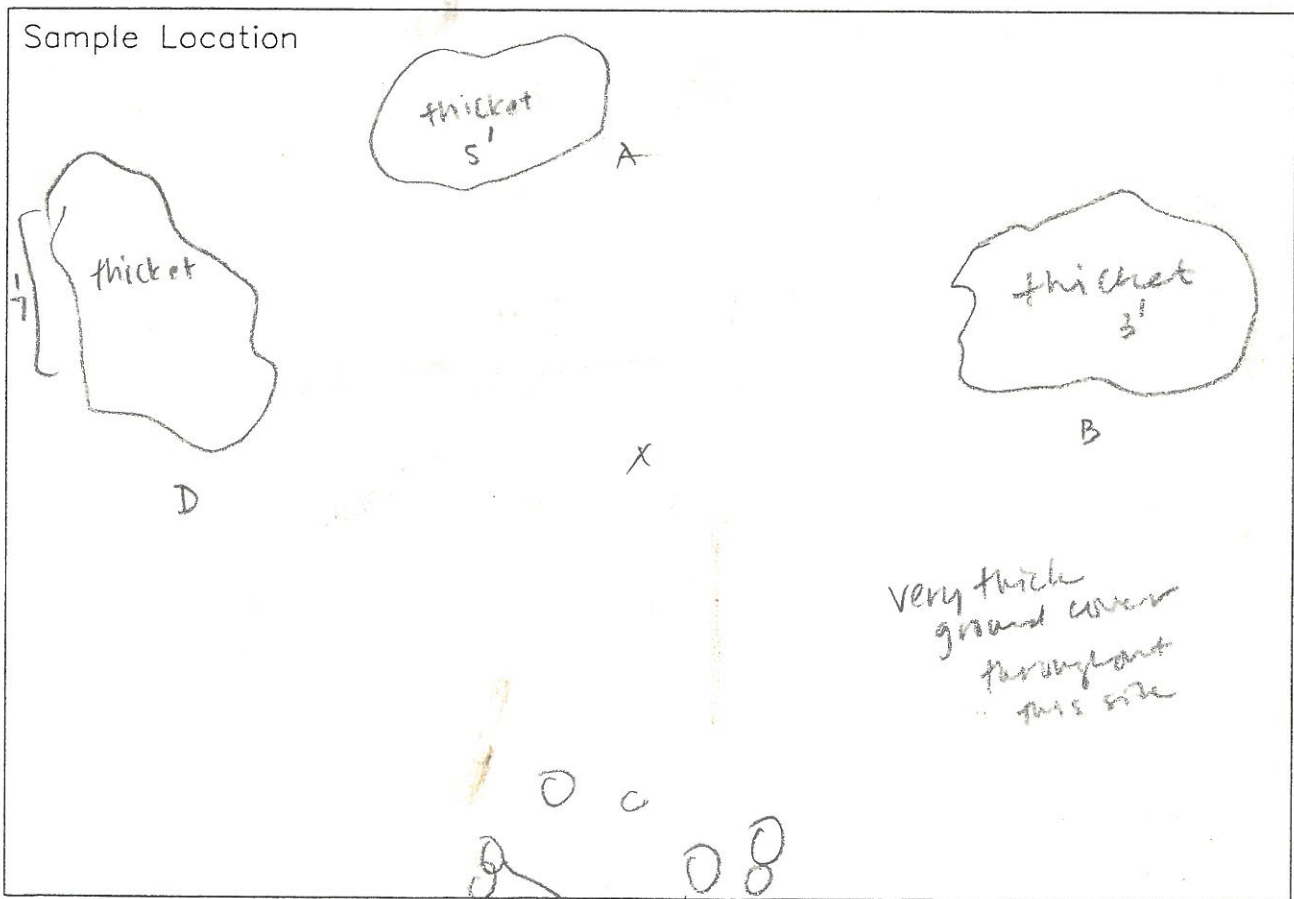 Sample Location
thicket
5'
A
thicket
7'
D
thicket
3'
B
X
very thick
ground cover
throughout
this side
C